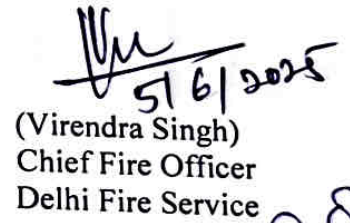 5/6/2025
(Virendra Singh)
Chief Fire Officer
Delhi Fire Service